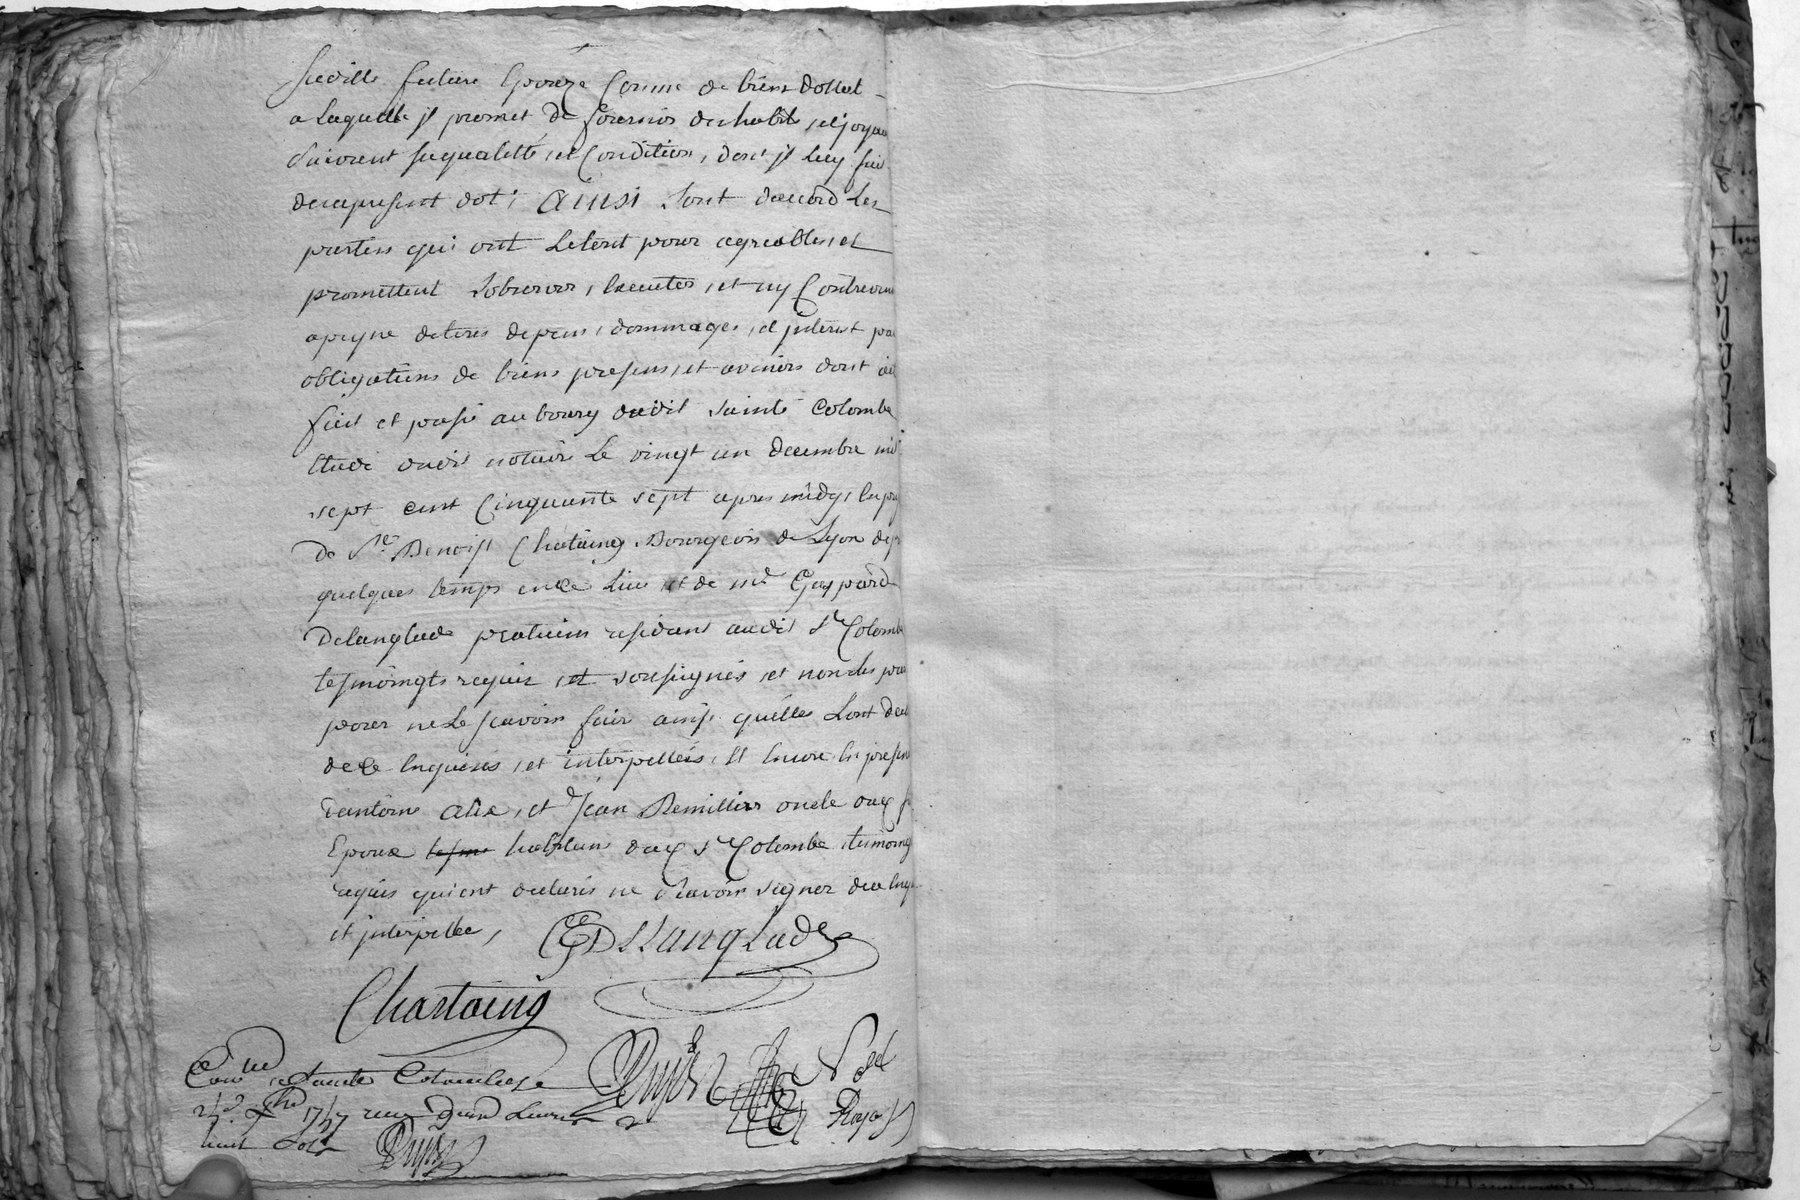 future Epouze comme de biens dottal
a Laquelle jl promet de fournir des habits, et joyau
suivent sa qualitté, et Condition, dont jl luy fait
des apresent dot; Ainsi sont daccord Les
parties qui ont Letout pour agreables, et
promettent Lobserver, Executer, et ny Contrevenir
apeyne detous depens, dommages, et jnterest par
obligations de biens presens, et avenirs dont acte
fait et passé au bourg dudit Sainte Colombe
Etude dudit notaire Le vingt un decembre mil
sept cent Cinquante sept apres midy, En pre
de Sr. Benoist Chataing Bourgeois de Lyon de
quelques temps en ce Lieu et de me Gaspard
Delanglade praticien residant audit Ste Colombe
tesmoingts requis, et soussignés, et non les par
pour ne Le scavoir fair ainsi quelles Sont
de ce Enquises, et interpellées, Et Encore En presen
dantoine et Jean Remillier oncle
Epoux habitans Ste Colombe temoing
requis qui ont declarés ne scavoir signer de ce Enq
et jnterpellee, GDelanglade
Chastaing
Conlle a Sainte Colombe Le
1757 reçu
huit sols